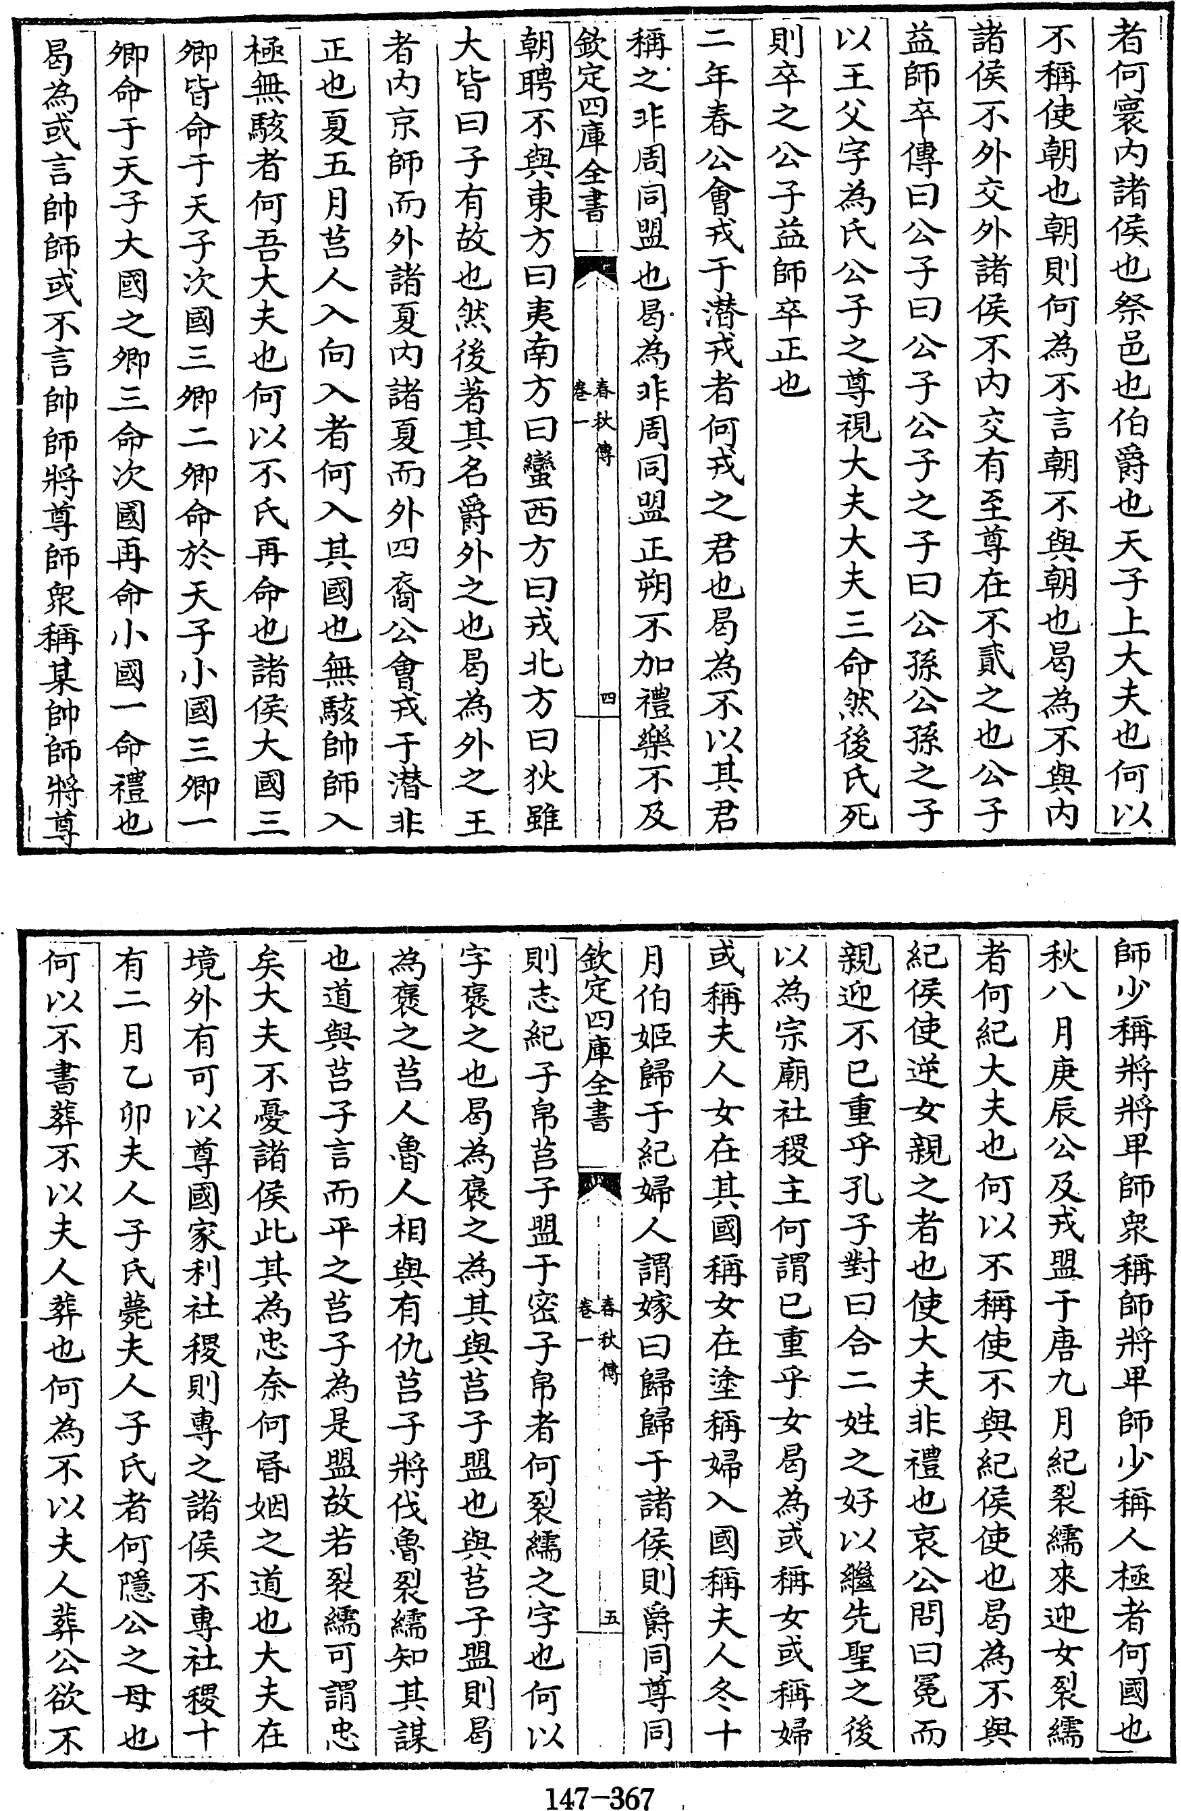 者何寰内諸侯也祭邑也伯爵也天子上大夫也何以
不稱使朝也朝則何為不言朝不與朝也曷為不與内
諸侯不外交外諸侯不内交有至尊在不貳之也公子
益師卒傳曰公子曰公子公子之子曰公孫公孫之子
以王父字為氏公子之尊視大夫大夫三命然後氏死
則卒之公子益師卒正也
二年春公會戎于潛戎者何戎之君也曷為不以其君
稱之非周同盟也曷為非周同盟正朔不加禮樂不及
欽定四庫全書
春秋傳
卷一
四
朝聘不與東方曰夷南方曰蠻西方曰戎北方曰狄雖
大皆曰子有故也然後著其名爵外之也曷為外之王
者内京師而外諸夏内諸夏而外四裔公會戎于潛非
正也夏五月莒人入向入者何入其國也無駭帥師入
極無駭者何吾大夫也何以不氏再命也諸侯大國三
卿皆命于天子次國三卿二卿命於天子小國三卿一
卿命于天子大國之卿三命次國再命小國一命禮也
曷為或言帥師或不言帥師將尊師衆稱某帥師將尊
師少稱將將卑師衆稱師將卑師少稱人極者何國也
秋八月庚辰公及戎盟于唐九月紀裂繻來迎女裂繻
者何紀大夫也何以不稱使不與紀侯使也曷為不與
紀侯使逆女親之者也使大夫非禮也哀公問曰冕而
親迎不已重乎孔子對曰合二姓之好以繼先聖之後
以為宗廟社稷主何謂已重乎女曷為或稱女或稱婦
或稱夫人女在其國稱女在塗稱婦入國稱夫人冬十
月伯姬歸于紀婦人謂嫁曰歸歸于諸侯則爵同尊同
欽定四庫全書
春秋傳
卷一
五
則志紀子帛莒子盟于密子帛者何裂繻之字也何以
字褒之也曷為褒之為其與莒子盟也與莒子盟則曷
為褒之莒人魯人相與有仇莒子將伐魯裂繻知其謀
也道與莒子言而平之莒子為是盟故若裂繻可謂忠
矣大夫不憂諸侯此其為忠奈何昏姻之道也大夫在
境外有可以尊國家利社稷則專之諸侯不專社稷十
有二月乙卯夫人子氏薨夫人子氏者何隱公之母也
何以不書葬不以夫人葬也何為不以夫人葬公欲不
147-367